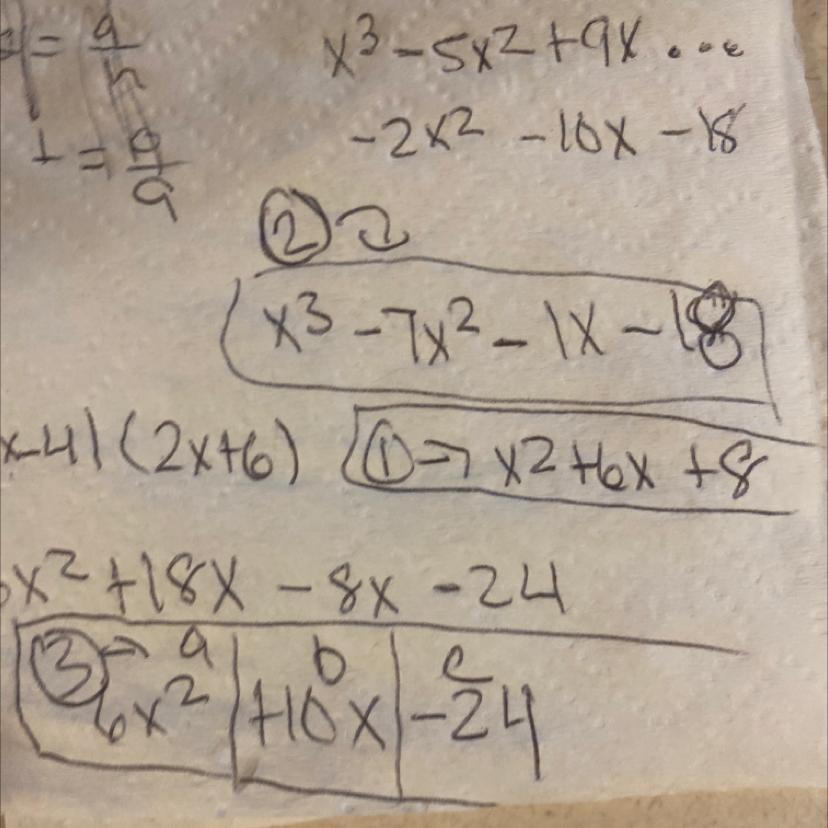 = a/h
x³ - 5x² + 9x ...
1 = a/a
-2x² - 10x - 18
②
x³ - 7x² - 1x - 18
x-4)(2x+6)
① → x² + 6x + 8
x² + 18x - 8x - 24
③ → a b c
6x² + 10x - 24